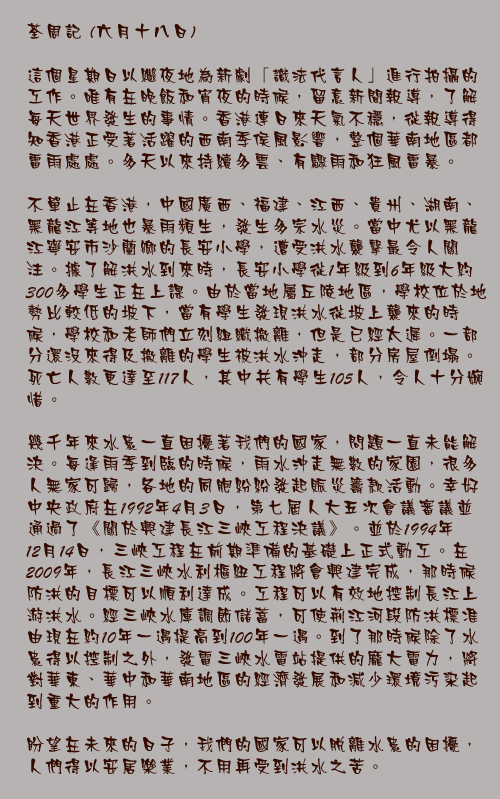 荃周記（六月十八日）
這個星期日以繼夜地為新劇「識法代言人」進行拍攝的
工作。唯有在晚飯和宵夜的時候，留意新聞報導，了解
每天世界發生的事情。香港連日來天氣不穩，從報導得
知香港正受著活躍的西南季候風影響，整個華南地區都
雷雨處處。多天以來持續多雲、有驟雨和狂風雷暴。
不單止在香港，中國廣西、福建、江西、貴州、湖南、
黑龍江等地也暴雨頻生，發生多宗水災。當中尤以黑龍
江寧安市沙蘭鄉的長安小學，遭受洪水襲擊最令人關
注。據了解洪水到來時，長安小學從1年級到6年級大約
300多學生正在上課。由於當地屬丘陵地區，學校位於地
勢比較低的坡下，當有學生發現洪水從坡上襲來的時
候，學校和老師們立刻組織撤離，但是已經太遲。一部
分還沒來得及撤離的學生被洪水沖走，部分房屋倒塌。
死亡人數更達至117人，其中共有學生105人，令人十分惋
惜。
幾千年來水患一直困擾著我們的國家，問題一直未能解
決。每逢雨季到臨的時候，雨水沖走無數的家園，很多
人無家可歸，各地的同胞紛紛發起賑災籌款活動。幸好
中央政府在1992年4月3日，第七屆人大五次會議審議並
通過了《關於興建長江三峽工程決議》。並於1994年
12月14日，三峽工程在前期準備的基礎上正式動工。在
2009年，長江三峽水利樞紐工程將會興建完成，那時候
防洪的目標可以順利達成。工程可以有效地控制長江上
游洪水。經三峽水庫調節儲蓄，可使荊江河段防洪標准
由現在約10年一遇提高到100年一遇。到了那時候除了水
患得以控制之外，發電三峽水電站提供的龐大電力，將
對華東、華中和華南地區的經濟發展和減少環境污染起
到重大的作用。
盼望在未來的日子，我們的國家可以脫離水患的困擾，
人們得以安居樂業，不用再受到洪水之苦。